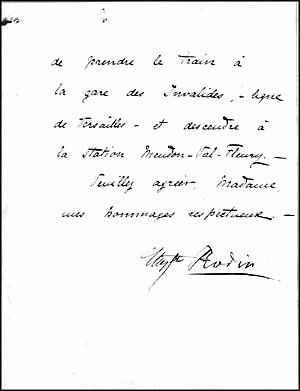 de prendre le train à
la gare des Invalides, - ligne
de Versailles - et descendre à
la station Meudon-Val-Fleury. -
Veuillez agréer, Madame,
mes hommages respectueux -
Augte Rodin